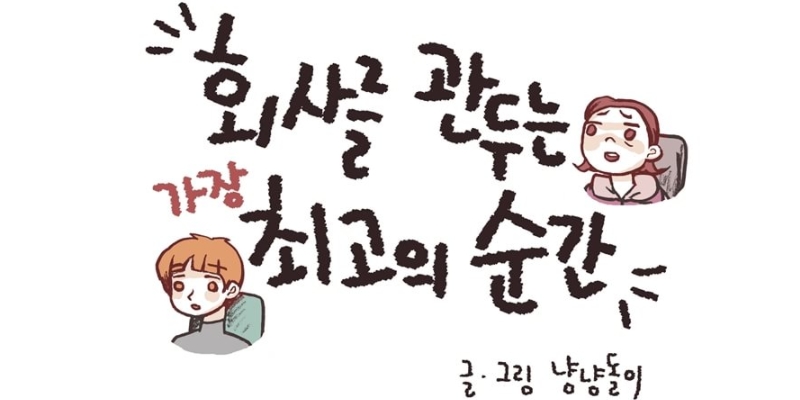 회사를 관두는
가장
최고의 순간
글·그림 냥냥돌이